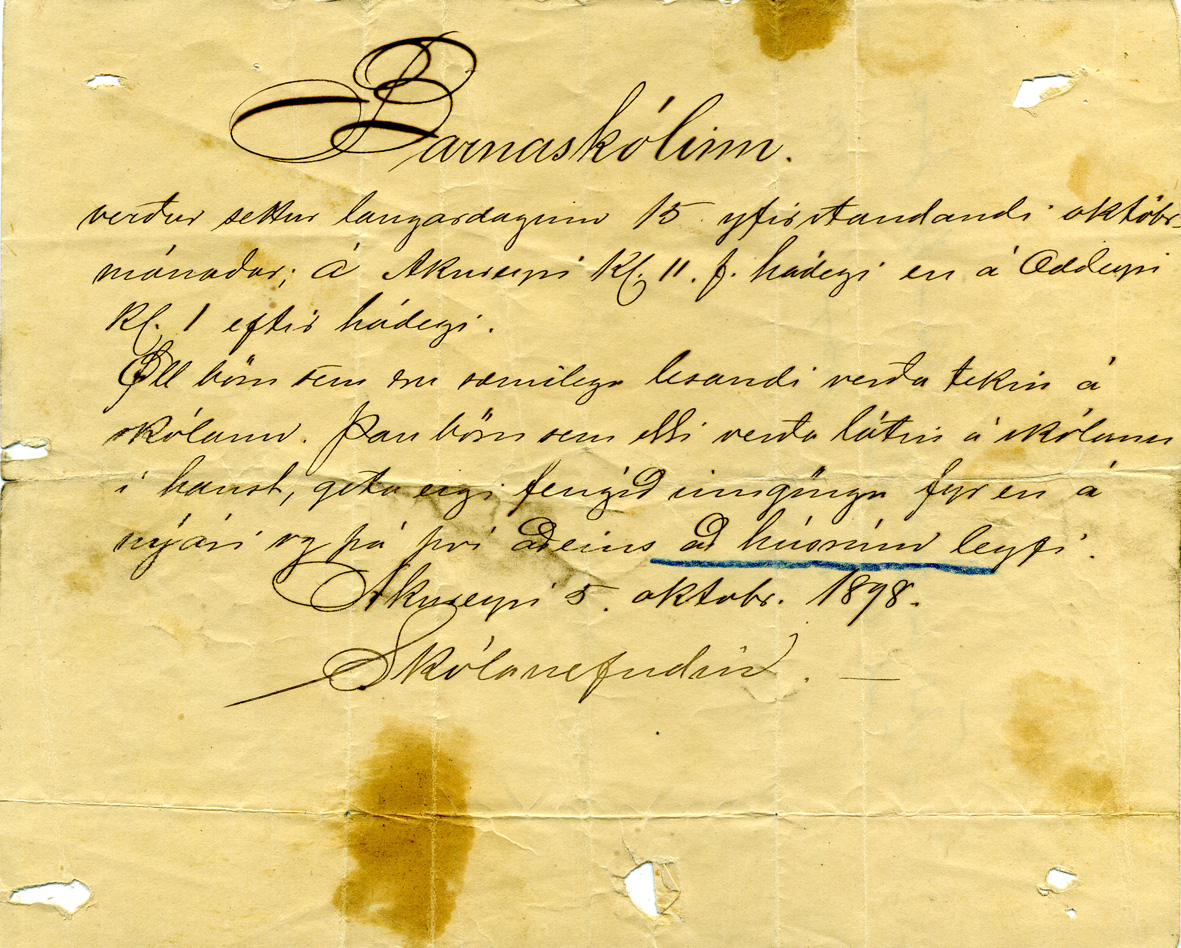 Barnaskólinn.
verður settur laugardaginn 15. yfirstandandi októbr.
mánaðar; á Akureyri Kl. 11. f. hádegi en á Oddeyri
Kl. 1 eftir hádegi.
Öll börn sem eru sæmilega lesandi verða tekin á
skólann. Þau börn sem ekki verða látin á skólann
í haust, geta eigi fengið inngöngu fyr en á
nýári og þá því aðeins að húsrúm leyfi.
Akureyri 5. oktobr. 1898.
Skólanefndin. —